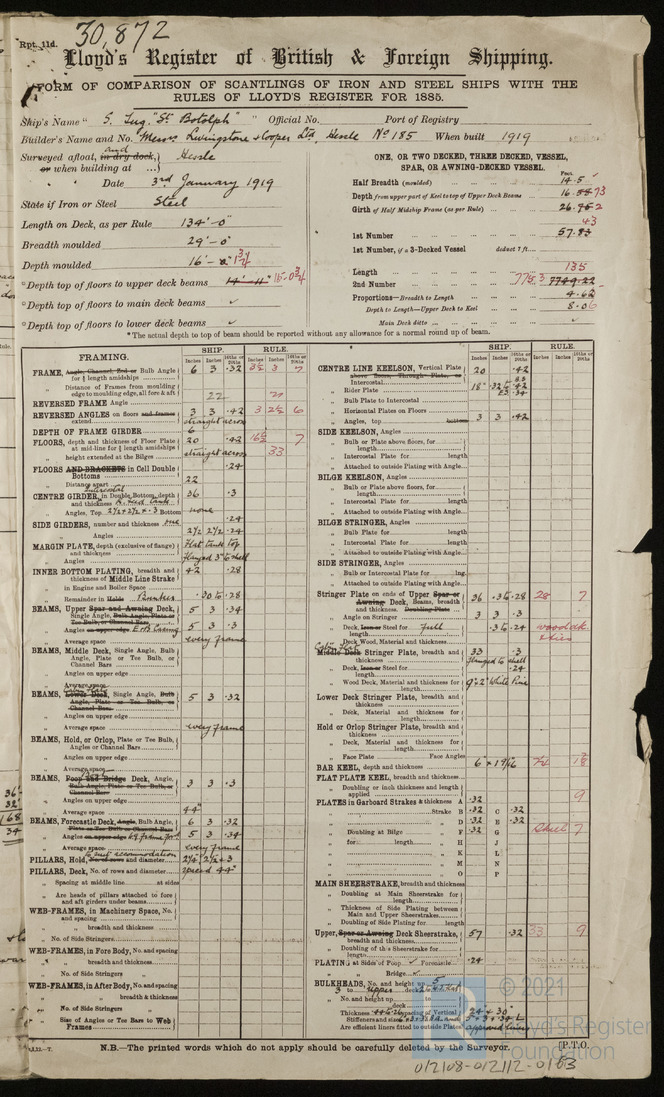 30,872
Rpt. 11d.
Lloyd's Register of British & Foreign Shipping.
FORM OF COMPARISON OF SCANTLINGS OF IRON AND STEEL SHIPS WITH THE
RULES OF LLOYD'S REGISTER FOR 1885.
Ship's Name " S. Tug. "St Botolph" " Official No. Port of Registry
Builder's Name and No. Messrs Livingstone & Cooper Ltd, Hessle No 185 When built 1919
Surveyed afloat, and in dry dock, Hessle
or when building at
Date 3rd January 1919
State if Iron or Steel Steel
Length on Deck, as per Rule 134'-0"
Breadth moulded 29'-0"
Depth moulded 16'-
°Depth top of floors to upper deck beams 14'-11"
°Depth top of floors to main deck beams ✓
°Depth top of floors to lower deck beams ✓
ONE, OR TWO DECKED, THREE DECKED, VESSEL,
SPAR, OR AWNING-DECKED VESSEL.
Feet.
Half Breadth (moulded) 14.5
Depth from upper part of Keel to top of Upper Deck Beams 16.
Girth of Half Midship Frame (as per Rule) 26.
43
1st Number 57.83
1st Number, if a 3-Decked Vessel deduct 7 ft.
Length 135
2nd Number 7749.22
Proportions—Breadth to Length 4.62
Depth to Length—Upper Deck to Keel 8.06
Main Deck ditto ✓
*The actual depth to top of beam should be reported without any allowance for a normal round up of beam.
FRAMING. SHIP. RULE.
Inches Inches 16ths or 20ths Inches Inches 16ths or 20ths
FRAME, Angle, Channel, Zed or Bulb Angle 6 3 .32 3½ 3 7
for ¾ length amidships
" Distance of Frames from moulding
edge to moulding edge, all fore & aft 22 21
REVERSED FRAME Angle
REVERSED ANGLES on floors and frames 3 3 .42 3 2½ 6
extend straight across
DEPTH OF FRAME GIRDER 6
FLOORS, depth and thickness of Floor Plate 20 .42 16½ 7
at mid-line for ¾ length amidships
" height extended at the Bilges straight across 33
FLOORS AND BRACKETS in Cell Double .24
Bottoms
" Distance apart 22
CENTRE GIRDER, in Double Bottom, depth 36 .3
and thickness
" Angles, Top Bottom none
SIDE GIRDERS, number and thickness one .24
" Angles 2½ 2½ .24
MARGIN PLATE, depth (exclusive of flange) flat tank top
and thickness
" Angles flanged 3" to shell
INNER BOTTOM PLATING, breadth and 42 .28
thickness of Middle Line Strake
" in Engine and Boiler Space
" Remainder in Holds Bunkers .30 to .28
BEAMS, Upper Spar and Awning Deck, 5 3 .34
Single Angle, Bulb Angle, Plate or
Tee Bulb, or Channel Bars
" Angles on upper edge E & B Casing 5 3 .3
" Average space every frame
BEAMS, Middle Deck, Single Angle, Bulb
Angle, Plate or Tee Bulb, or
Channel Bars
" Angles on upper edge
" Average space
BEAMS, Lower Deck, Single Angle, Bulb 5 3 .32
Angle, Plate or Tee Bulb, or
Channel Bars
" Angles on upper edge
" Average space every frame
BEAMS, Hold, or Orlop, Plate or Tee Bulb,
Angles or Channel Bars
" Angles on upper edge
" Average space
BEAMS, Poop and Bridge Deck, Angle, 3 3 .3
Bulb Angle, Plate or Tee Bulb, or
Channel Bars
" Angles on upper edge
" Average space 44"
BEAMS, Forecastle Deck, Angle, Bulb Angle, 6 3 .32
Plate or Tee Bulb or Channel Bars
" Angles on upper edge 5 3 .34
" Average space every frame
PILLARS, Hold, No. of rows and diameter to suit accomodation
PILLARS, Deck, No. of rows and diameter spaced 44"
" Spacing at middle line at sides
" Are heads of pillars attached to fore
and aft girders under beams
WEB-FRAMES, in Machinery Space, No.
and spacing
" breadth and thickness
" No. of Side Stringers
WEB-FRAMES, in Fore Body, No. and spacing
" breadth and thickness
" No. of Side Stringers
WEB-FRAMES, in After Body, No. and spacing
" breadth & thickness
" No. of Side Stringers
" Size of Angles or Tee Bars to Web
Frames
SHIP. RULE.
Inches Inches 16ths or 20ths Inches Inches 16ths or 20ths
CENTRE LINE KEELSON, Vertical Plate 20 .42
above floors, Through Plate, or
Intercostal
" Rider Plate 18"
" Bulb Plate to Intercostal
" Horizontal Plates on Floors
" Angles, top bottom 3 3 .42
SIDE KEELSON, Angles
" Bulb or Plate above floors, for
length
" Intercostal Plate for length
" Attached to outside Plating with Angle
BILGE KEELSON, Angles
" Bulb or Plate above floors, for
length
" Intercostal Plate for length
" Attached to outside Plating with Angle
BILGE STRINGER, Angles
" Bulb Plate for length
" Intercostal Plate for length
" Attached to outside Plating with Angle
SIDE STRINGER, Angles
" Bulb or Intercostal Plate for lng.
" Attached to outside Plating with Angle
Stringer Plate on ends of Upper Spar or 36 .3 to .28 28 7
Awning Deck, Beams, breadth
and thickness. Doubling Plate
" Angle on Stringer 3 3 .3
" Deck, Iron or Steel for full .3 to .24 wood deck
length
" Deck Wood, Material and thickness ties
Cabin flat
Middle Deck Stringer Plate, breadth and 33 .3
thickness flanged to shell
" Deck, Iron or Steel for .24
length
" Wood Deck, Material and thickness for 9"2½" White Pine
length
Lower Deck Stringer Plate, breadth and
thickness
" Deck, Material and thickness for
length
Hold or Orlop Stringer Plate, breadth and
thickness
" Deck, Material and thickness for
length
" Face Plate Face Angles
BAR KEEL, depth and thickness
FLAT PLATE KEEL, breadth and thickness
" Doubling or inch thickness and length
applied 9
PLATES in Garboard Strakes & thickness A .32
" Strake B .32 C .32
" D .32 E .32
" Doubling at Bilge F .32 G Sheet 7
" for length H J
" K L
" M N
" O P
MAIN SHEERSTRAKE, breadth and thickness
" Doubling at Main Sheerstrake for
length
" Thickness of Side Plating between
Main and Upper Sheerstrakes
" Doubling of Side Plating for length
Upper, Spar or Awning Deck Sheerstrake, 57 .32 33 9
breadth and thickness
" Doubling of this Sheerstrake for
length
PLATING at Sides of Poop ✓ Forecastle .24
" Bridge ✓
BULKHEADS, No. and height up 5
3 to upper deck
" No. and height up
deck
" Thickness Spacing of Vertical 24 & 30
Stiffeners and sizes
" Are efficient liners fitted to outside Plating approved
N.B.—The printed words which do not apply should be carefully deleted by the Surveyor. [P.T.O.
© 2021
Lloyd's Register
Foundation
012108-012112-0153